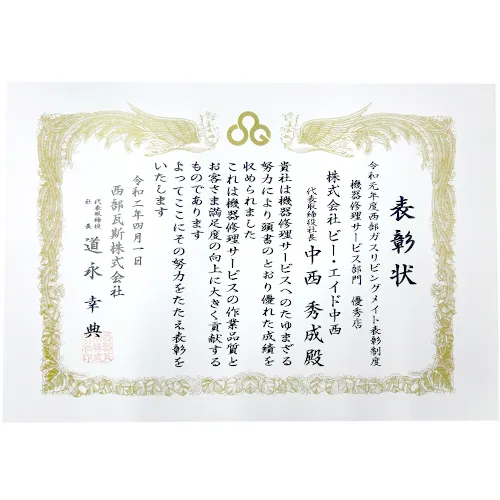 表彰状
令和元年度西部ガスリビングメイト表彰制度
機器修理サービス部門 優秀店
株式会社ビー・エイド中西
代表取締役社長 中西 秀成 殿
貴社は機器修理サービスへのたゆまざる
努力により頭書のとおり優れた成績を
収められました
これは機器修理サービスの作業品質と
お客さま満足度の向上に大きく貢献する
ものであります
よってここにその努力をたたえ表彰を
いたします
令和二年四月一日
西部瓦斯株式会社
代表取締役社長 道永幸典